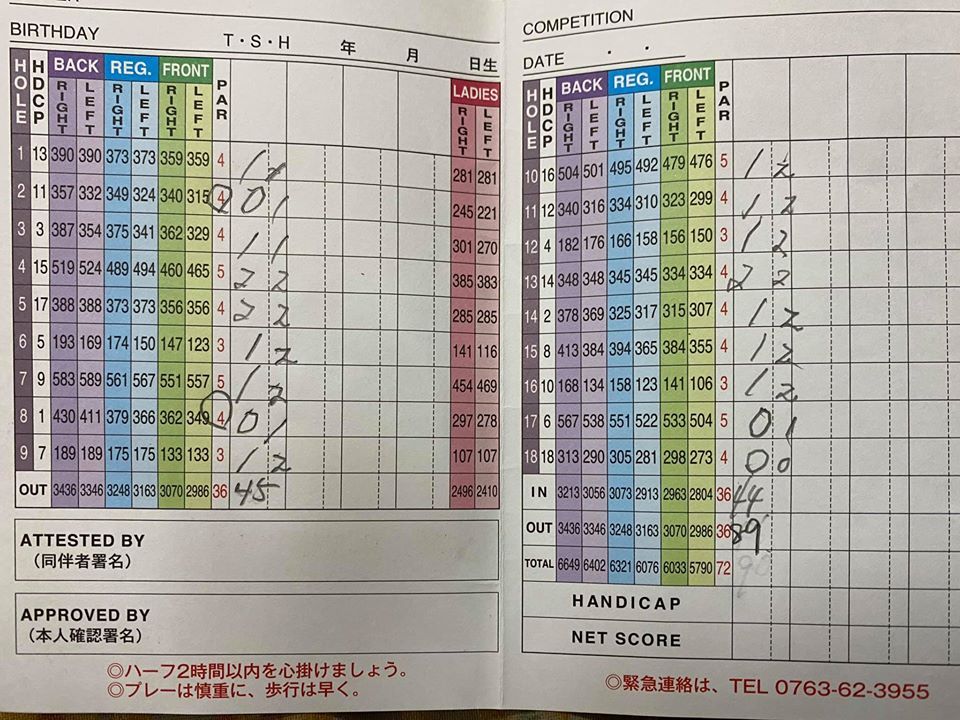 BIRTHDAY T・S・H 年 月 日生
HOLE HDCP BACK REG. FRONT PAR LADIES
RIGHT LEFT RIGHT LEFT RIGHT LEFT RIGHT LEFT
1 13 390 390 373 373 359 359 4 1 1 281 281
2 11 357 332 349 324 340 315 4 0 1 245 221
3 3 387 354 375 341 362 329 4 1 1 301 270
4 15 519 524 489 494 460 465 5 2 2 385 383
5 17 388 388 373 373 356 356 4 2 2 285 285
6 5 193 169 174 150 147 123 3 1 2 141 116
7 9 583 589 561 567 551 557 5 1 2 454 469
8 1 430 411 379 366 362 349 4 0 1 297 278
9 7 189 189 175 175 133 133 3 1 2 107 107
OUT 3436 3346 3248 3163 3070 2986 36 45 2496 2410
ATTESTED BY
(同伴者署名)
APPROVED BY
(本人確認署名)
◎ハーフ2時間以内を心掛けましょう。
◎プレーは慎重に、歩行は早く。
COMPETITION
DATE ・ ・
HOLE HDCP BACK REG. FRONT PAR
RIGHT LEFT RIGHT LEFT RIGHT LEFT
10 16 504 501 495 492 479 476 5 1 2
11 12 340 316 334 310 323 299 4 1 2
12 4 182 176 166 158 156 150 3 1 2
13 14 348 348 345 345 334 334 4 2 2
14 2 378 369 325 317 315 307 4 1 2
15 8 413 384 394 365 384 355 4 1 2
16 10 168 134 158 123 141 106 3 1 2
17 6 567 538 551 522 533 504 5 0 1
18 18 313 290 305 281 298 273 4 0 0
IN 3213 3056 3073 2913 2963 2804 36 44
OUT 3436 3346 3248 3163 3070 2986 36 89
TOTAL 6649 6402 6321 6076 6033 5790 72
HANDICAP
NET SCORE
◎緊急連絡は、TEL 0763-62-3955